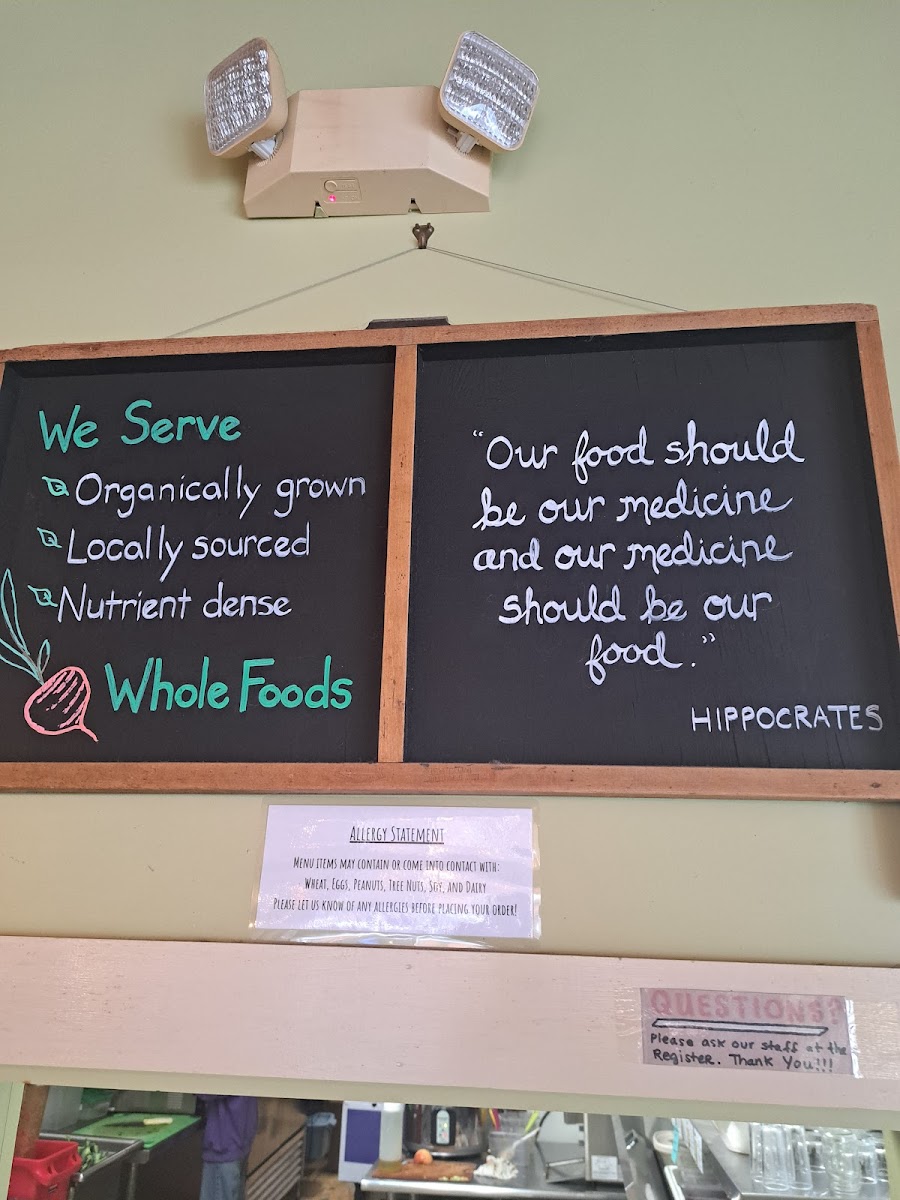 We Serve
Organically grown
Locally sourced
Nutrient dense
Whole Foods
"Our food should
be our medicine
and our medicine
should be our
food."
HIPPOCRATES
ALLERGY STATEMENT
MENU ITEMS MAY CONTAIN OR COME INTO CONTACT WITH:
WHEAT, EGGS, PEANUTS, TREE NUTS, SOY, AND DAIRY
PLEASE LET US KNOW OF ANY ALLERGIES BEFORE PLACING YOUR ORDER!
QUESTIONS?
Please ask our staff at the
Register. Thank You!!!